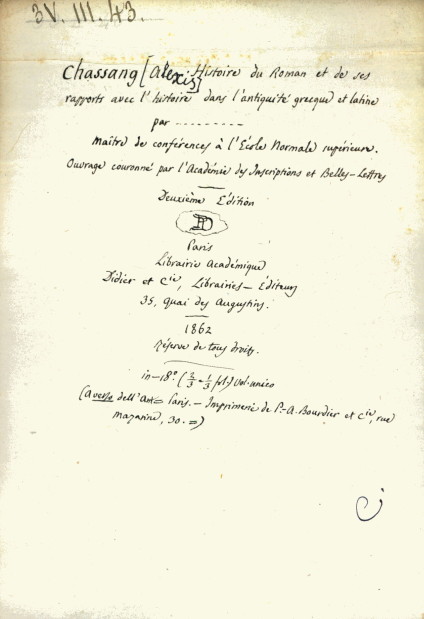 3V. III. 43.
Chassang [Alexis] Histoire du Roman et de ses
rapports avec l'histoire dans l'antiquité grecque et latine
par ---------
Maître de conférences à l'École Normale supérieure.
Ouvrage couronné par l'Académie des Inscriptions et Belles-Lettres
Deuxième Édition
Paris
Librairie Académique
Didier et Cie, Libraires-Éditeurs
35, Quai des Augustins.
1862
Réserve de tous droits.
in-18º vol. unico
(a verso dell' = Paris. - Imprimerie de P.-A. Bourdier et Cie, rue
Mazarine, 30. =)